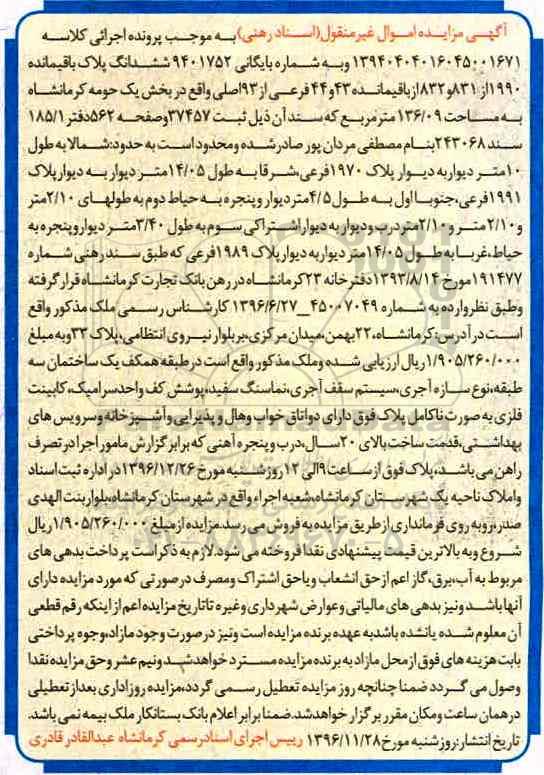 آگهی مزایده اموال غیرمنقول(اسناد رهنی) به موجب پرونده اجرائی کلاسه
۱۳۹۴۰۴۰۴۰۱۶۰۴۵۰۰۱۶۷۱ وبه شماره بایگانی ۹۴۰۱۷۵۲ ششدانگ پلاک باقیمانده
۱۹۹۰از ۸۳۱و۸۳۲ ازباقیمانده۴۳و۴۴فرعی از۹۳اصلی واقع در بخش یک حومه کرمانشاه
به مساحت ۱۳۶/۰۹ مترمربع که سند آن ذیل ثبت ۳۷۴۵۷وصفحه ۵۶۲دفتر ۱۸۵/۱
سند ۲۴۳۰۶۸بنام مصطفی مردان پور صادرشده ومحدود است به حدود:شمالا به طول
۱۰متر دیواربه دیوار پلاک ۱۹۷۰فرعی،شرقا به طول ۱۴/۰۵متر دیوار به دیوارپلاک
۱۹۹۱فرعی،جنوبا اول به طول۴/۵متردیوار و پنجره به حیاط دوم به طولهای ۲/۱۰متر
و۲/۱۰متر و ۲/۱۰متردرب ودیوار به دیواراشتراکی سوم به طول ۳/۴۰متر دیوار وپنجره به
حیاط،غربا به طول ۱۴/۰۵متر دیواربه دیوارپلاک ۱۹۸۹فرعی که طبق سند رهنی شماره
۱۹۱۴۷۷مورخ ۱۳۹۳/۸/۱۴دفترخانه ۲۳کرمانشاه در رهن بانک تجارت کرمانشاه قرار گرفته
وطبق نظروارده به شماره ۴۵۰۰۷۰۴۹_۱۳۹۶/۶/۲۷ کارشناس رسمی ملک مذکور واقع
است در آدرس:کرمانشاه،۲۲بهمن،میدان مرکزی،بربلوار نیروی انتظامی،پلاک ۳۳وبه مبلغ
۱/۹۰۵/۲۶۰/۰۰۰ریال ارزیابی شده وملک مذکور واقع است در طبقه همکف یک ساختمان سه
طبقه،نوع سازه آجری،سیستم سقف آجری،نماسنگ سفید،پوشش کف واحدسرامیک،کابینت
فلزی به صورت ناکامل پلاک فوق دارای دواتاق خواب وهال و پذیرایی و آشپزخانه وسرویس های
بهداشتی،قدمت ساخت بالای ۲۰سال،درب و پنجره آهنی که برابر گزارش مامور اجرا در تصرف
راهن می باشد،پلاک فوق از ساعت ۹الی ۱۲ روزشنبه مورخ ۱۳۹۶/۱۲/۲۶در اداره ثبت اسناد
واملاک ناحیه یک شهرستان کرمانشاه،شعبه اجراء واقع در شهرستان کرمانشاه،بلوار بنت الهدی
صدر،روبه روی فرمانداری از طریق مزایده به فروش می رسد.مزایده ازمبلغ ۱/۹۰۵/۲۶۰/۰۰۰ ریال
شروع وبه بالاترین قیمت پیشنهادی نقدا فروخته می شود.لازم به ذکراست پرداخت بدهی های
مربوط به آب،برق،گاز اعم از حق انشعاب ویاحق اشتراک ومصرف درصورتی که مورد مزایده دارای
آنها باشد ونیز بدهی های مالیاتی وعوارض شهرداری وغیره تا تاریخ مزایده اعم از اینکه رقم قطعی
آن معلوم شده یا نشده باشد به عهده برنده مزایده است ونیز در صورت وجود مازاد،وجوه پرداختی
بابت هزینه های فوق ازمحل مازاد به برنده مزایده مسترد خواهدشد ونیم عشر وحق مزایده نقدا
وصول می گردد ضمنا چنانچه روز مزایده تعطیل رسمی گردد،مزایده روزاداری بعداز تعطیلی
درهمان ساعت ومکان مقرر برگزار خواهدشد.ضمنا برابر اعلام بانک بستانکار ملک بیمه نمی باشد.
تاریخ انتشار:روزشنبه مورخ ۱۳۹۶/۱۱/۲۸ رییس اجرای اسنادرسمی کرمانشاه عبدالقادر قادری